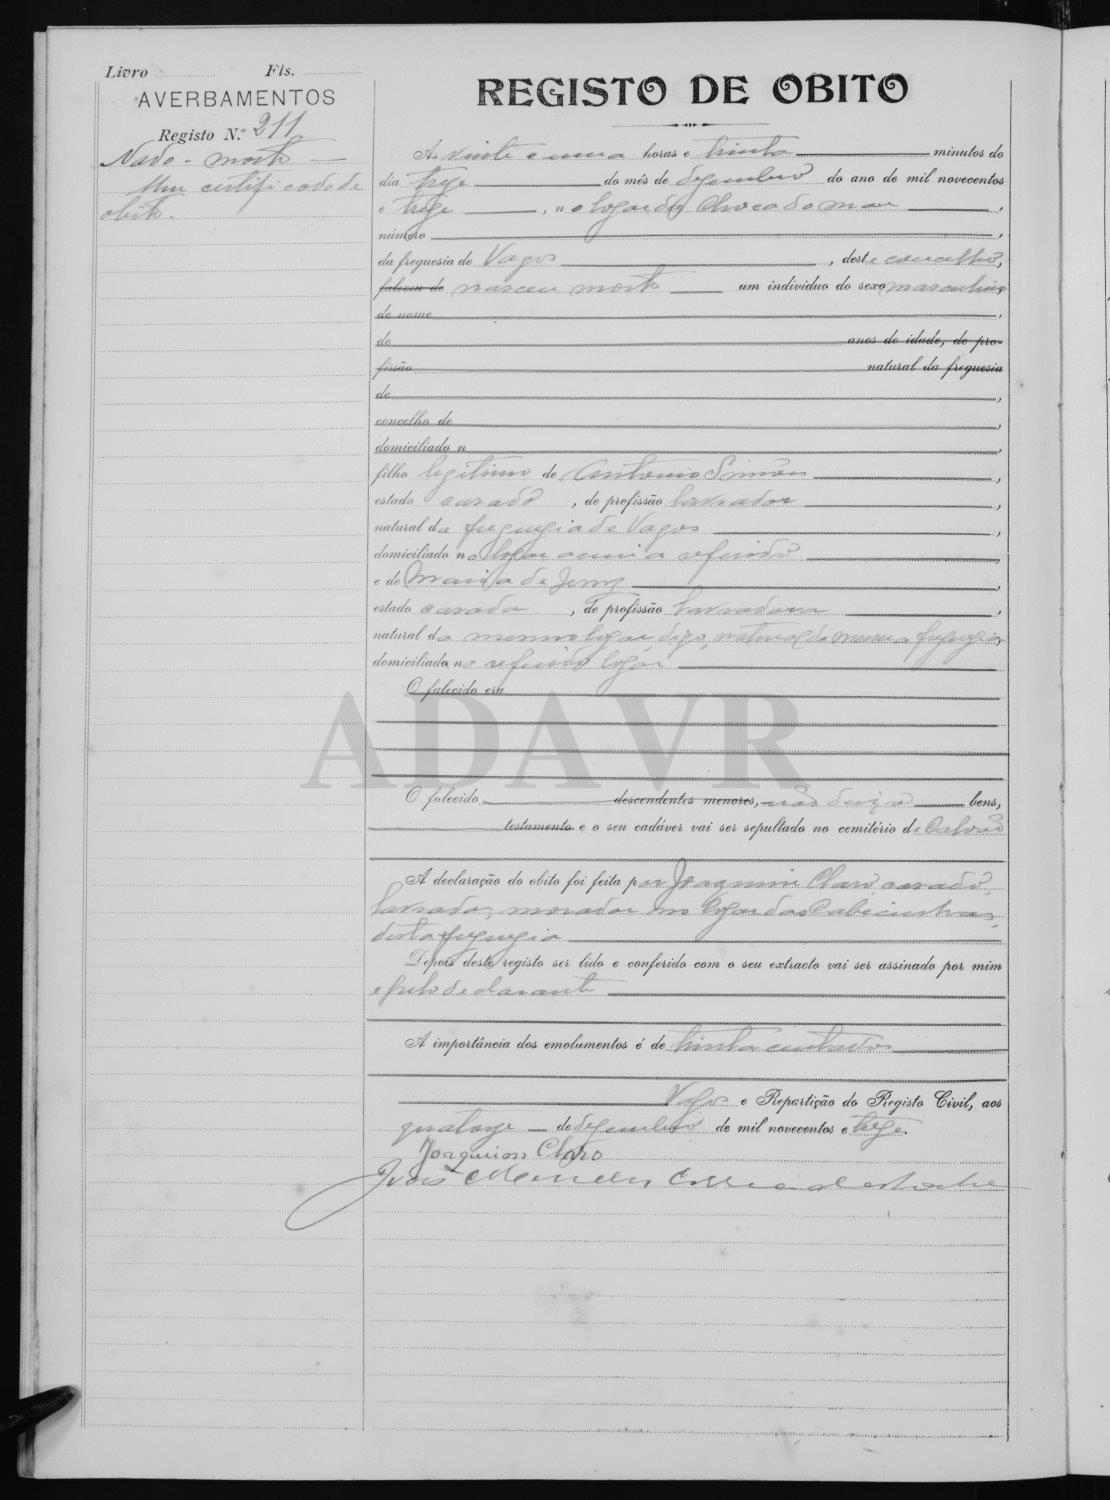 Livro Fls.
AVERBAMENTOS
Registo N.º 211
Nado-morto —
Um certificado de
obito.
REGISTO DE OBITO
Ás vinte e uma horas e trinta minutos do
dia treze do mês de dezembro do ano de mil novecentos
e treze, no logar da Choca do mar,
número
da freguesia de Vagos, deste concelho,
faleceu de nasceu morto um individuo do sexo masculino,
de nome
de anos de idade, de pro-
fissão natural da freguesia
de
concelho de
domiciliado n
filho legitimo de Antonio Simões,
estado casado, de profissão lavrador,
natural da freguezia de Vagos,
domiciliado no logar acima referido,
e de Maria de Jesus,
estado casada, de profissão lavradora,
natural do mesmo logar, digo, natural da mesma freguezia,
domiciliada no referido logar
O falecido era
ADAVR
O falecido descendentes menores, não deixa bens,
testamento e o seu cadáver vai ser sepultado no cemitério de Calvão
A declaração do obito foi feita por Joaquim Claro, casado,
lavrador, morador no logar das
desta freguezia
Depois deste registo ser lido e conferido com o seu extracto vai ser assinado por mim
e pelo declarante
A importância dos emolumentos é de trinta centavos
Vagos e Repartição do Registo Civil, aos
quatorze de dezembro de mil novecentos e treze.
Joaquim Claro
Mendes Correia